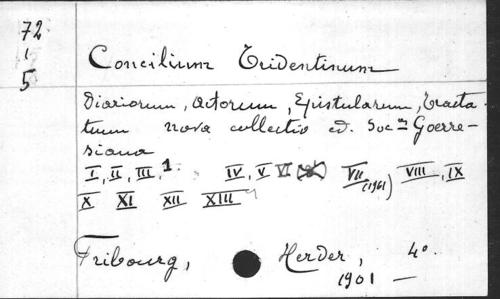 72
1
5
Concilium Tridentinum
Diariorum, Actorum, Epistularum, Tracta-
tuum nova collectio ed. Soc.as Goerre-
siana
I, II, III, 1. IV, V VI VII (1961) VIII, IX
X XI XII XIII
Fribourg, Herder, 4º.
1901 —